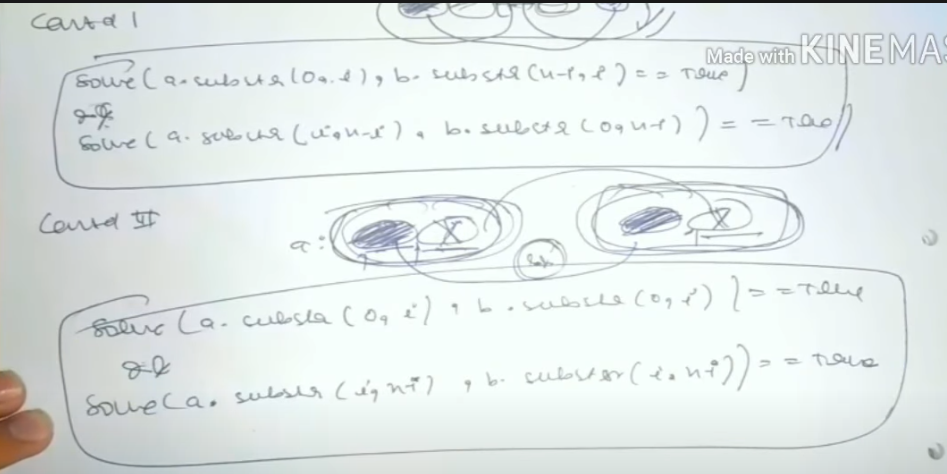 Cond I
Made with KINEMAS
Solve (a.substr(0, i), b.substr(n-i, i) == True)
&&
Solve (a.substr(i, n-i), b.substr(0, n-i)) == True
Cond II
a:
Solve (a.substr(0, i), b.substr(0, i)) == True
&&
Solve (a.substr(i, n-i), b.substr(i, n-i)) == True